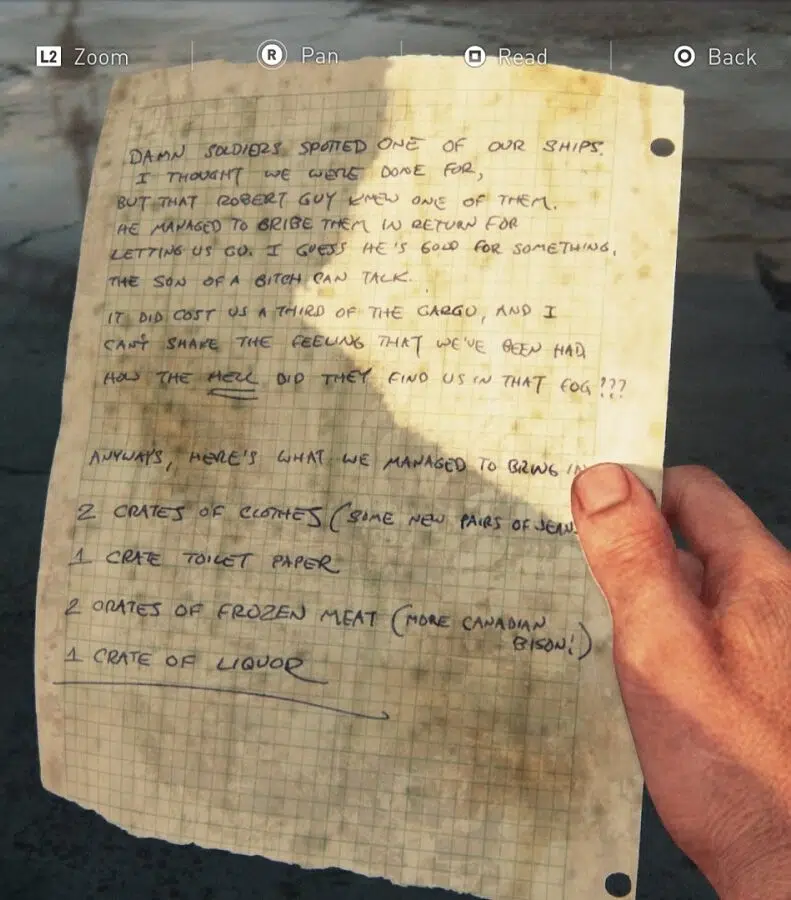 L2 Zoom R Pan Read Back
DAMN SOLDIERS SPOTTED ONE OF OUR SHIPS.
I THOUGHT WE WERE DONE FOR,
BUT THAT ROBERT GUY KNEW ONE OF THEM.
HE MANAGED TO BRIBE THEM IN RETURN FOR
LETTING US GO. I GUESS HE'S GOOD FOR SOMETHING.
THE SON OF A BITCH CAN TALK.
IT DID COST US A THIRD OF THE CARGO, AND I
CAN'T SHAKE THE FEELING THAT WE'VE BEEN HAD
HOW THE HELL DID THEY FIND US IN THAT FOG???
ANYWAYS, HERE'S WHAT WE MANAGED TO BRING IN
2 CRATES OF CLOTHES (SOME NEW PAIRS OF JEANS
1 CRATE TOILET PAPER
2 CRATES OF FROZEN MEAT (MORE CANADIAN
BISON!)
1 CRATE OF LIQUOR